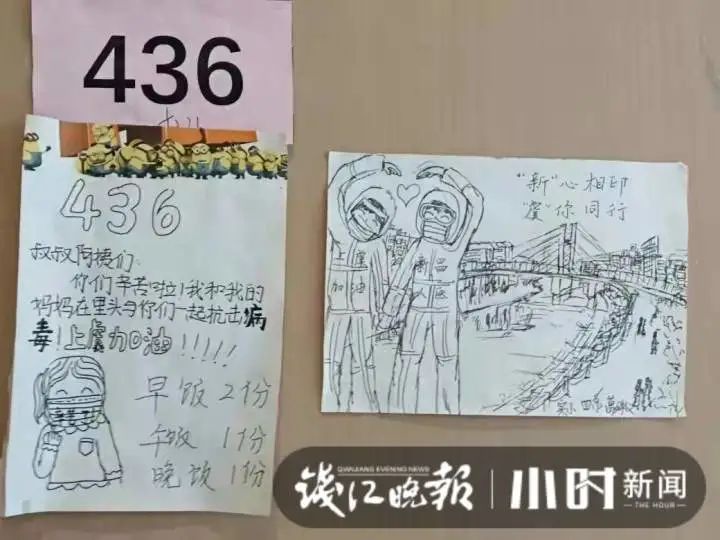 436
436
叔叔阿姨们:
你们辛苦啦!我和我的
妈妈在里头与你们一起抗击病
毒!上虞加油!!!!!
早饭2份
午饭1份
晚饭1份
"新"心相印
"虞"你同行
上虞
加油
新昌
钱江晚报
QIANJIANG EVENING NEWS
小时新闻
THE HOUR